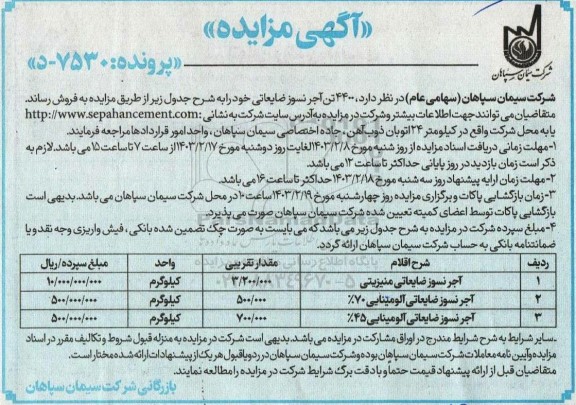 «آگهی مزایده»
«پرونده: ۷۵۳۰-د»
شرکت سیمان سپاهان
شرکت سیمان سپاهان (سهامی عام) در نظر دارد، ۴۴۰۰ تن آجر نسوز ضایعاتی خود را به شرح جدول زیر از طریق مزایده به فروش رساند.
متقاضیان می توانند جهت اطلاعات بیشتر و شرکت در مزایده به آدرس سایت شرکت به نشانی: http://www.sepahancement.com
یا به محل شرکت واقع در کیلومتر ۲۴ اتوبان ذوب آهن، جاده اختصاصی سیمان سپاهان، واحد امور قراردادها مراجعه فرمایند.
۱-مهلت زمانی دریافت اسناد مزایده از روز شنبه مورخ ۱۴۰۳/۲/۸ لغایت روز دوشنبه مورخ ۱۴۰۳/۲/۱۷ از ساعت ۷ تا ساعت ۱۵ می باشد. لازم به
ذکر است زمان بازدید در روز پایانی حداکثر تا ساعت ۱۲ می باشد.
۲-مهلت زمان ارایه پیشنهاد روز سه شنبه مورخ ۱۴۰۳/۲/۱۸ حداکثر تا ساعت ۱۶ می باشد.
۳-زمان بازگشایی پاکات و برگزاری مزایده روز چهارشنبه مورخ ۱۴۰۳/۲/۱۹ ساعت ۱۰ در محل شرکت سیمان سپاهان می باشد. بدیهی است
بازگشایی پاکات توسط اعضای کمیته تعیین شده شرکت سیمان سپاهان صورت می پذیرد.
۴-مبلغ سپرده شرکت در مزایده به شرح جدول زیر می باشد که می بایست به صورت چک تضمین شده بانکی، فیش واریزی وجه نقد و یا
ضمانتنامه بانکی به حساب شرکت سیمان سپاهان ارائه گردد.
ردیف شرح اقلام مقدار تقریبی واحد مبلغ سپرده/ریال
۱ آجر نسوز ضایعاتی منیزیتی ۳/۲۰۰/۰۰۰ کیلوگرم ۱۰/۰۰۰/۰۰۰/۰۰۰
۲ آجر نسوز ضایعاتی آلومینایی ۷۰٪ ۵۰۰/۰۰۰ کیلوگرم ۵۰۰/۰۰۰/۰۰۰
۳ آجر نسوز ضایعاتی آلومینایی ۴۵٪ ۷۰۰/۰۰۰ کیلوگرم ۵۰۰/۰۰۰/۰۰۰
.سایر شرایط به شرح شرایط مندرج در اوراق مشارکت در مزایده می باشد. بدیهی است شرکت در مزایده به منزله قبول شروط و تکالیف مقرر در اسناد
مزایده و آیین نامه معاملات شرکت سیمان سپاهان بوده و شرکت سیمان سپاهان در رد و یا قبول هر یک از پیشنهادات ارائه شده مختار است.
متقاضیان قبل از ارائه پیشنهاد قیمت حتماً و با دقت برگ شرایط شرکت در مزایده را مطالعه نمایند.
بازرگانی شرکت سیمان سپاهان